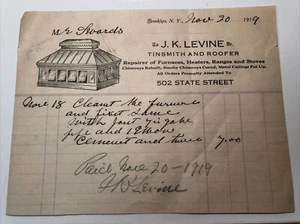 Brooklyn, N. Y., Nov 20 1919
Mr Swards
To J. K. LEVINE Dr.
TINSMITH AND ROOFER
Repairer of Furnaces, Heaters, Ranges and Stoves
Chimneys Rebuilt, Smoky Chimneys Cured, Metal Ceilings Put Up.
All Orders Promptly Attended To
502 STATE STREET
Nov 18 Cleant the furnace
and fixet same
with four
pipe and 1 Elbow
Cement and 7.00
Paid Nov 20 - 1919
J K Levine